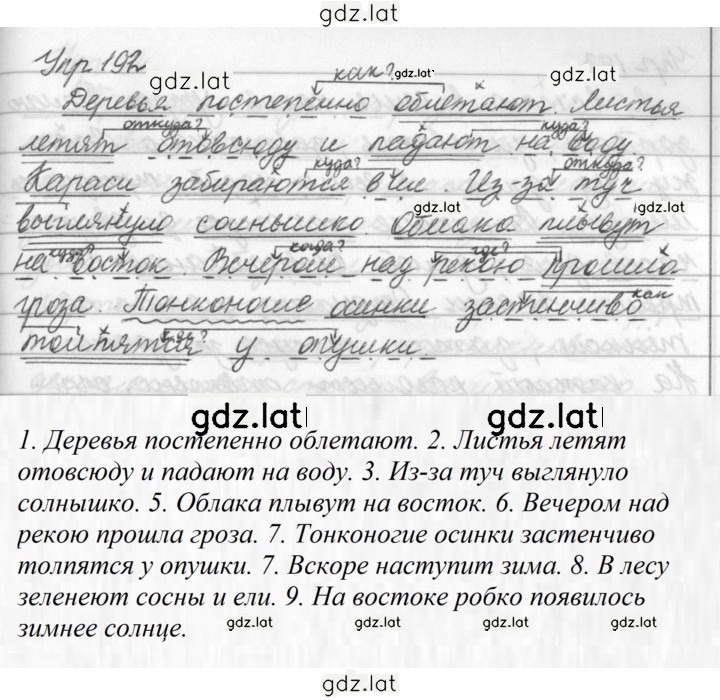 gdz.lat
Упр 192
как?
gdz.lat
gdz.lat
Деревья постепенно облетают Листья
откуда? куда?
летят отовсюду и падают на воду.
куда? откуда?
Караси забираются в ил. Из-за туч
gdz.lat gdz.lat
выглянуло солнышко. Облака плывут
куда? когда? где?
на восток. Вечером над рекою прошла
гроза. Тонконогие осинки застенчиво
как
толпятся у опушки.
gdz.lat gdz.lat
1. Деревья постепенно облетают. 2. Листья летят
отовсюду и падают на воду. 3. Из-за туч выглянуло
солнышко. 5. Облака плывут на восток. 6. Вечером над
рекою прошла гроза. 7. Тонконогие осинки застенчиво
толпятся у опушки. 7. Вскоре наступит зима. 8. В лесу
зеленеют сосны и ели. 9. На востоке робко появилось
зимнее солнце.
gdz.lat gdz.lat gdz.lat
gdz.lat